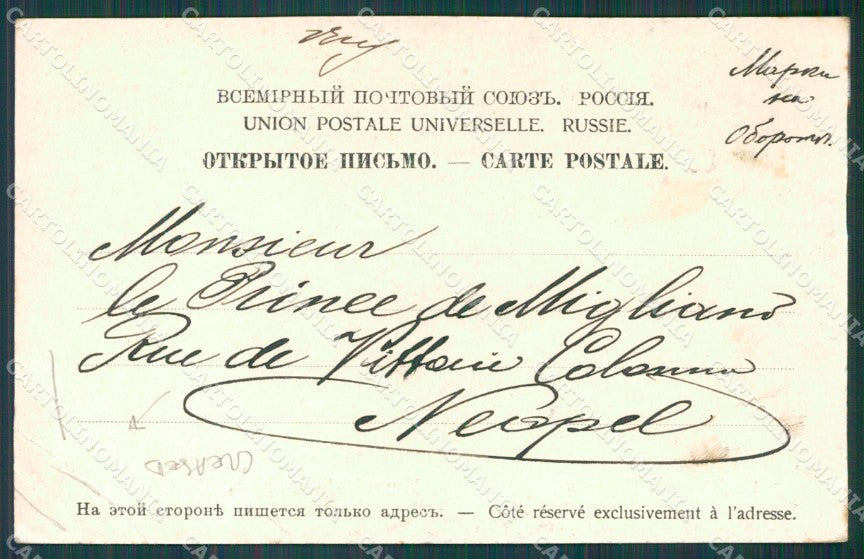 ВСЕМІРНЫЙ ПОЧТОВЫЙ СОЮЗЪ. РОССІЯ.
UNION POSTALE UNIVERSELLE. RUSSIE.
ОТКРЫТОЕ ПИСЬМО. — CARTE POSTALE.
Марки
на
Оборотѣ.
Monsieur
le Prince de Migliano
Rue de Vittoria Colonna
Neapel
CREASED
На этой сторонѣ пишется только адресъ. — Côté réservé exclusivement à l'adresse.
CARTOLINOMANIA